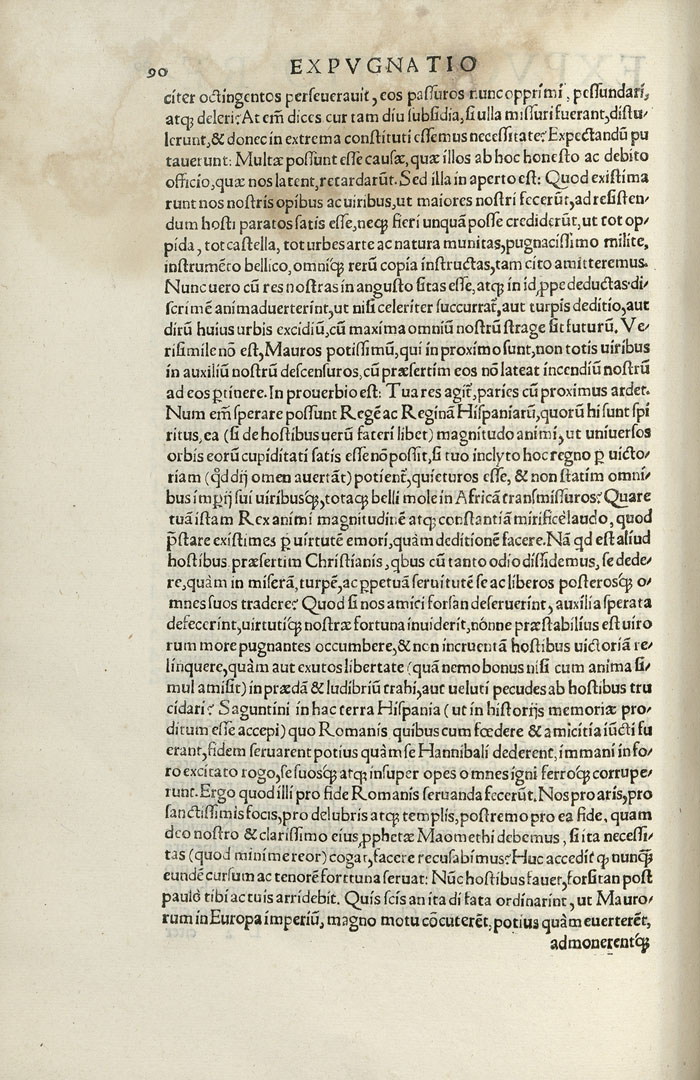 90 EXPVGNATIO
citer octingentos perseuerauit, eos passuros nunc opprimi, pessundari,
atq; deleri? At em̃ dices cur tam diu subsidia, si ulla missuri fuerant, distu-
lerunt, & donec in extrema constituti essemus necessitate? Expectandũ pu
tauerunt: Multæ possunt esse causæ, quæ illos ab hoc honesto ac debito
officio, quæ nos latent, retardarũt. Sed illa in aperto est: Quod existima
runt nos nostris opibus ac uiribus, ut maiores nostri fecerũt, ad resisten-
dum hosti paratos satis esse, neq; fieri unquã posse crediderũt, ut tot op-
pida, tot castella, tot urbes arte ac natura munitas, pugnacissimo milite,
instrumẽto bellico, omniq; rerũ copia instructas, tam cito amitteremus.
Nunc uero cũ res nostras in angusto sitas esse, atq; in id ꝓpe deductas di-
scrimẽ animaduerterint, ut nisi celeriter succurrat̃, aut turpis deditio, aut
dirũ huius urbis excidiũ, cũ maxima omniũ nostrũ strage sit futurũ. Ve-
risimile nõ est, Mauros potissimũ, qui in proximo sunt, non totis uiribus
in auxiliũ nostrũ descensuros, cũ præsertim eos nõ lateat incendiũ nostrũ
ad eos ꝑtinere. In prouerbio est: Tua res agit̃, paries cũ proximus ardet.
Num em̃ sperare possunt Regẽ ac Reginã Hispaniarũ, quorũ hi sunt spi
ritus, ea (si de hostibus uerũ fateri libet) magnitudo animi, ut uniuersos
orbis eorũ cupiditati satis esse nõ possit, si tuo inclyto hoc regno ꝑ uicto-
riam (qd̃ dij omen auertãt) potient̃, quieturos esse, & non statim omni-
bus imꝑij sui uiribusq;, totaq; belli mole in Africã transmissuros? Quare
tuã istam Rex animi magnitudinẽ atq; constantiã mirificè laudo, quod
p̃stare existimes ꝑ uirtutẽ emori, quàm deditionẽ facere. Nã qd est aliud
hostibus præsertim Christianis, qbus cũ tanto odio dissidemus, se dede-
re, quàm in miserã, turpẽ, ac ꝑpetuã seruitutẽ se ac liberos posterosq; o-
mnes suos tradere? Quod si nos amici forsan deseruerint, auxilia sperata
defecerint, uirtutiq; nostræ fortuna inuiderit, nónne præstabilius est uiro
rum more pugnantes occumbere, & non incruentã hostibus uictoriã re-
linquere, quàm aut exutos libertate (quã nemo bonus nisi cum anima si-
mul amisit) in prædã & ludibriũ trahi, aut ueluti pecudes ab hostibus tru
cidari? Saguntini in hac terra Hispania (ut in historijs memoriæ pro-
ditum esse accepi) quo Romanis quibus cum fœdere & amicitia iũcti fu
erant, fidem seruarent potius quàm se Hannibali dederent, immani in fo-
ro excitato rogo, se suosq; atq; insuper opes omnes igni ferroq; corrupe-
runt. Ergo quod illi pro fide Romanis seruanda fecerũt. Nos pro aris, pro
sanctissimis focis, pro delubris atq; templis, postremo pro ea fide, quam
deo nostro & clarissimo eius ꝓphetæ Maomethi debemus, si ita necessi-
tas (quod minime reor) cogat, facere recusabimus? Huc accedit q̃ nunq̃
eundẽ cursum ac tenorẽ forttuna seruat: Nũc hostibus fauet, forsitan post
paulò tibi ac tuis arridebit. Quis scis an ita di fata ordinarint, ut Mauro-
rum in Europa imperiũ, magno motu cõcuterẽt, potius quàm euerterẽt,
admonerentq;